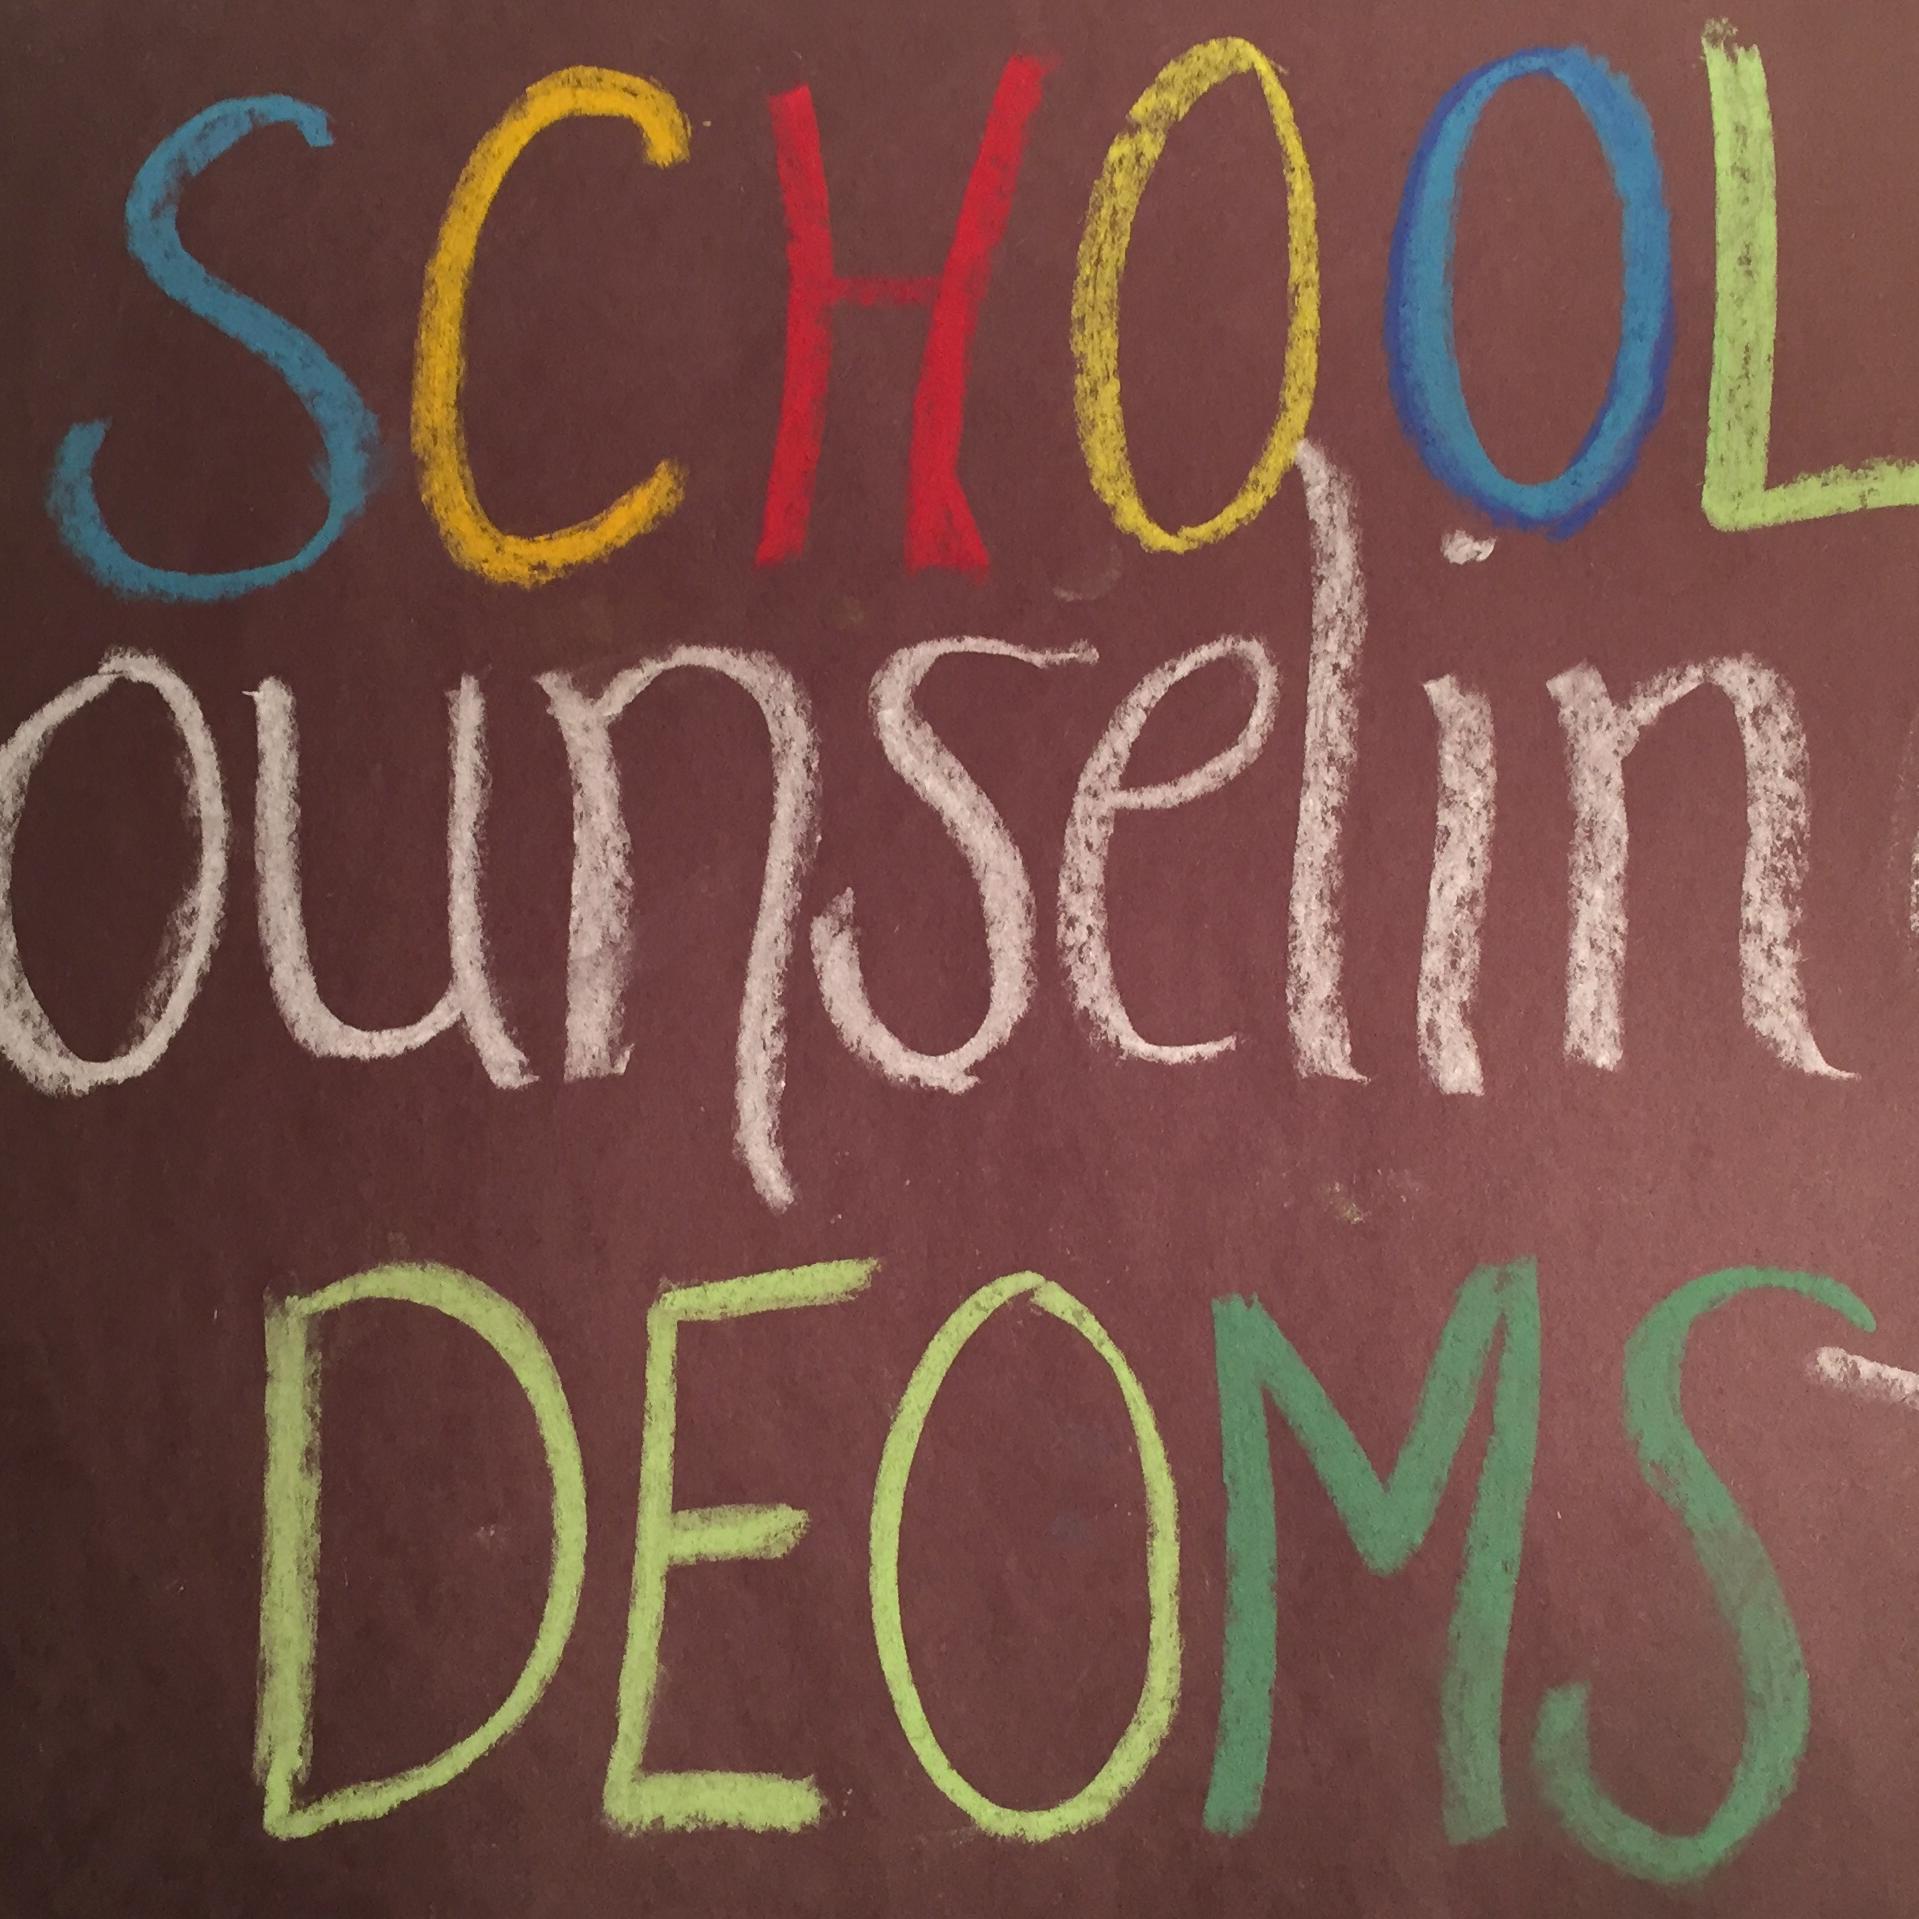 SCHOOL
ounselin
DEOMS